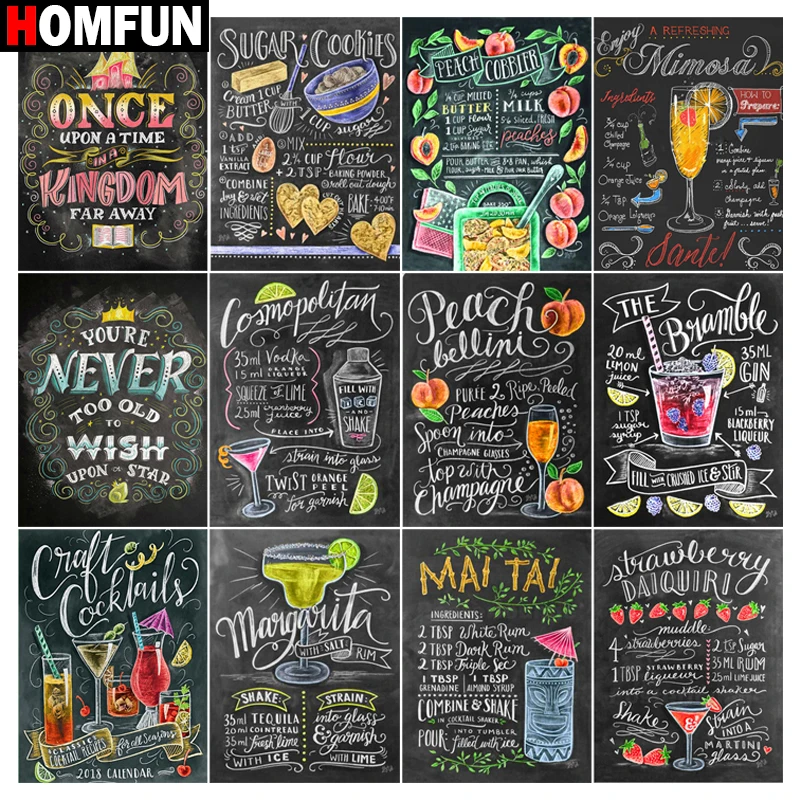 HOMFUN
ONCE
UPON A TIME
IN A
KINGDOM
FAR AWAY
SUGAR COOKIES
Cream 1 CUP
BUTTER WITH
1 CUP sugar
ADD
1 tsp
VANILLA
EXTRACT
MIX
2 ¾ CUP Flour
+ 2 TSP BAKING POWDER
& roll out dough
COMBINE
dry & wet
INGREDIENTS
BAKE 400°F
7-10 min
PEACH COBBLER
MELTED
BUTTER
1 CUP Flour
1 CUP Sugar
cups
MILK
5-6 Sliced, FRESH
peaches
POUR BUTTER
Enjoy
A REFRESHING
Mimosa
Ingredients
HOW TO
Prepare:
¾ cup
Chilled
Champagne
¼ cup
Orange Juice
Orange
1. Combine
Santé!
YOU'RE
NEVER
TOO OLD
TO
WISH
UPON A STAR
Cosmopolitan
35ml Vodka
15ml ORANGE LIQUEUR
SQUEEZE OF LIME
25ml cranberry juice
PLACE INTO
FILL WITH
ICE
AND
SHAKE
strain into glass
TWIST ORANGE PEEL
for garnish
Peach
bellini
PURÉE 2 Ripe Peeled
Peaches
Spoon into
CHAMPAGNE GLASSES
top with
Champagne
THE
Bramble
20 ml
LEMON
juice
35ML
GIN
1 TSP
sugar
syrup
15ml
BLACKBERRY
LIQUEUR
FILL WITH CRUSHED ICE & STIR
Craft
Cocktails
CLASSIC
COCKTAIL RECIPES
for all Seasons
2018 CALENDAR
Margarita
WITH SALT RIM
SHAKE:
35ml TEQUILA
20ml COINTREAU
35ml fresh lime
WITH ICE
STRAIN:
into glass
& garnish
WITH LIME
MAI TAI
INGREDIENTS:
2 TBSP White Rum
2 TBSP Dark Rum
2 TBSP Triple Sec
1 TBSP GRENADINE
1 TBSP ALMOND SYRUP
COMBINE & SHAKE
IN COCKTAIL SHAKER
POUR: INTO TUMBLER
filled with ice
strawberry
DAIQUIRI
muddle
4 strawberries
1 TBSP STRAWBERRY liqueur
2 tsp Sugar
35 ML RUM
25ml LIME JUICE
into a cocktail shaker
Shake
&
Strain
INTO A
MARTINI
glass